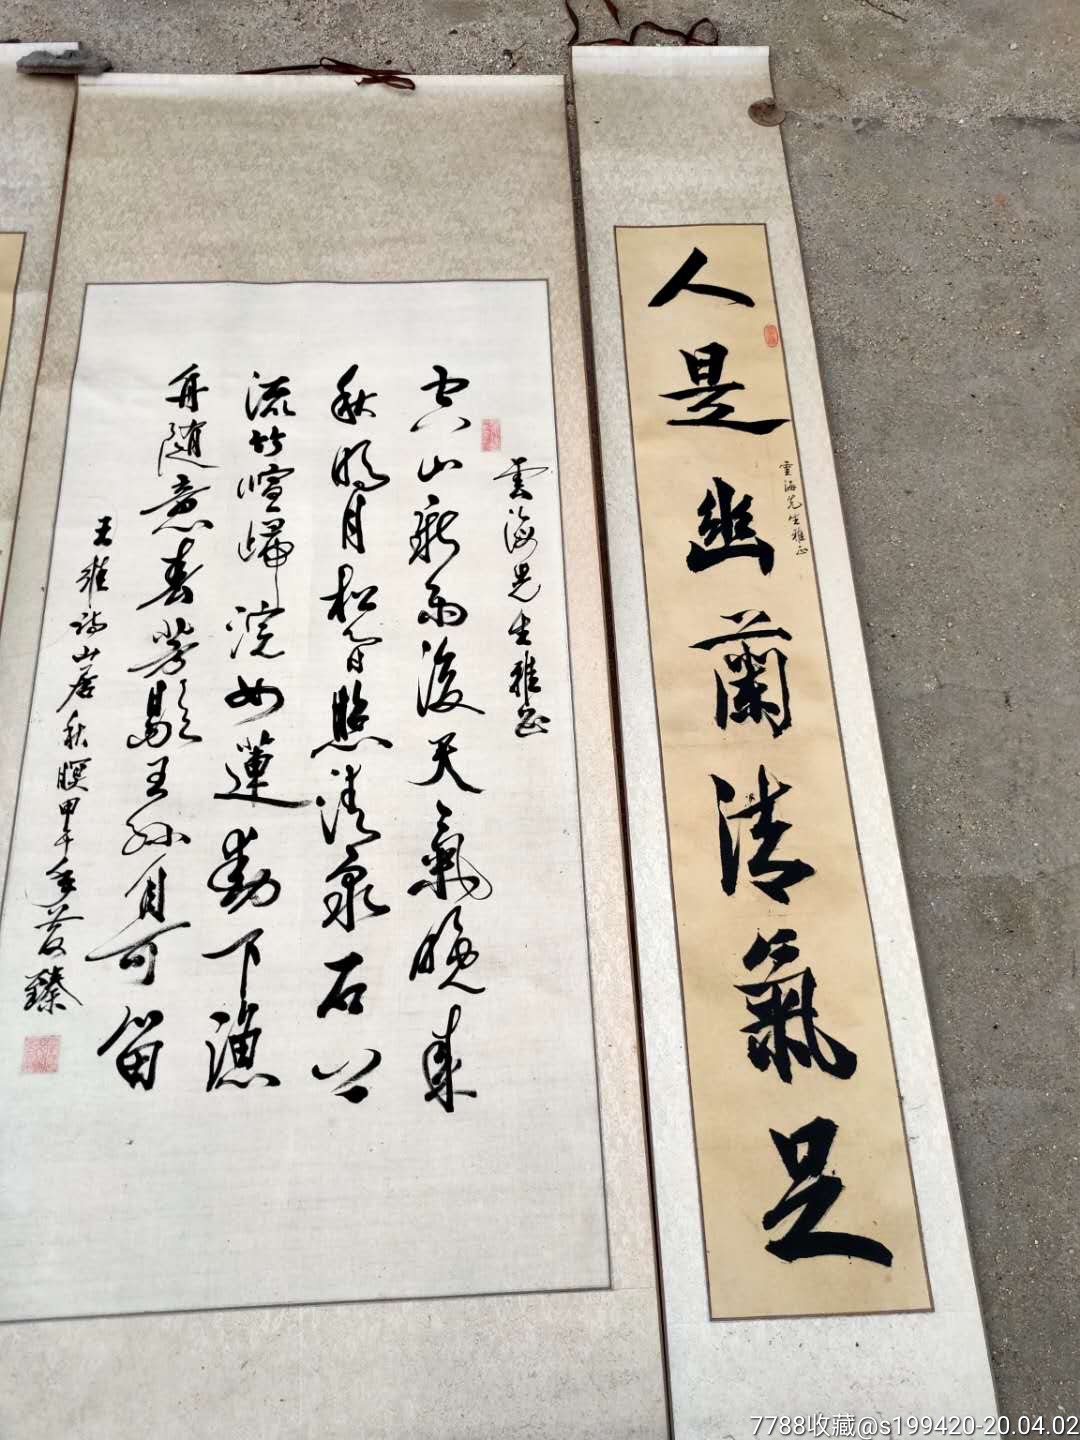 雲海先生雅正
人是幽蘭清氣足
雲海先生雅正
空山新雨後天氣晚来
秋明月松间照清泉石上
流竹喧歸浣女蓮動下漁
舟随意春芳歇王孙自可留
王維詩山居秋暝甲午年臻
7788收藏@s199420-20.04.02